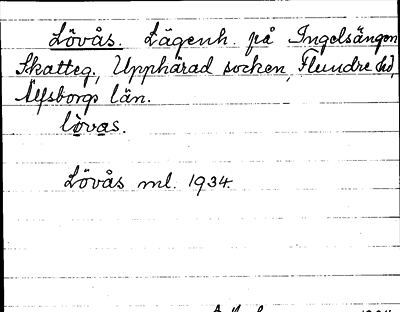 Lövås. Lägenh. på Ingelsängen
Skatteg., Upphärad socken, Flundre hd,
Älfsborgs län.
lòvas.
Lövås ml. 1934.